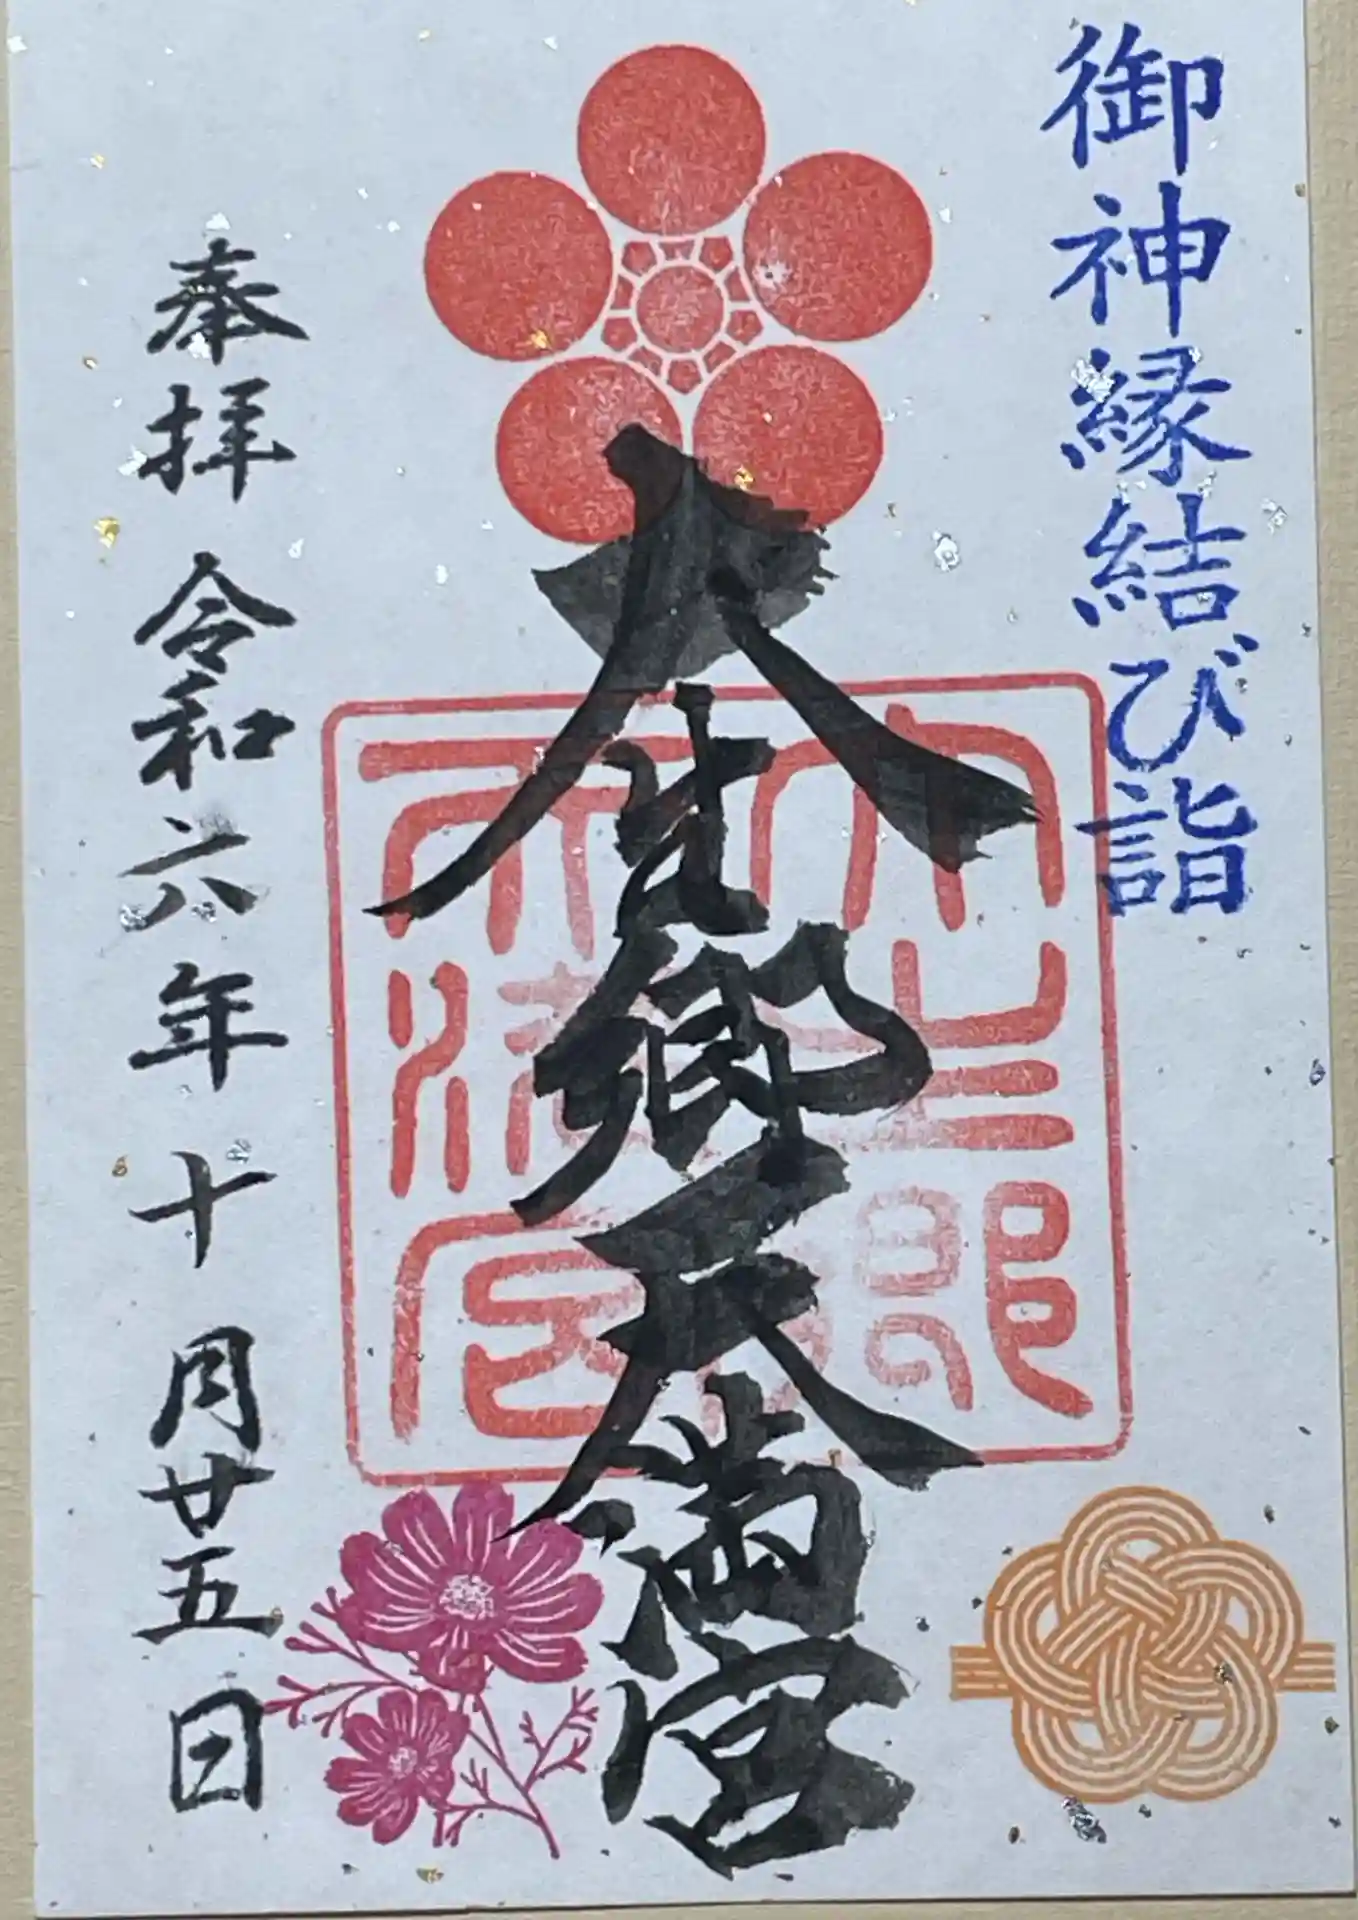 御神縁結び詣
大生郷天満宮
奉拝 令和六年 十月廿五日